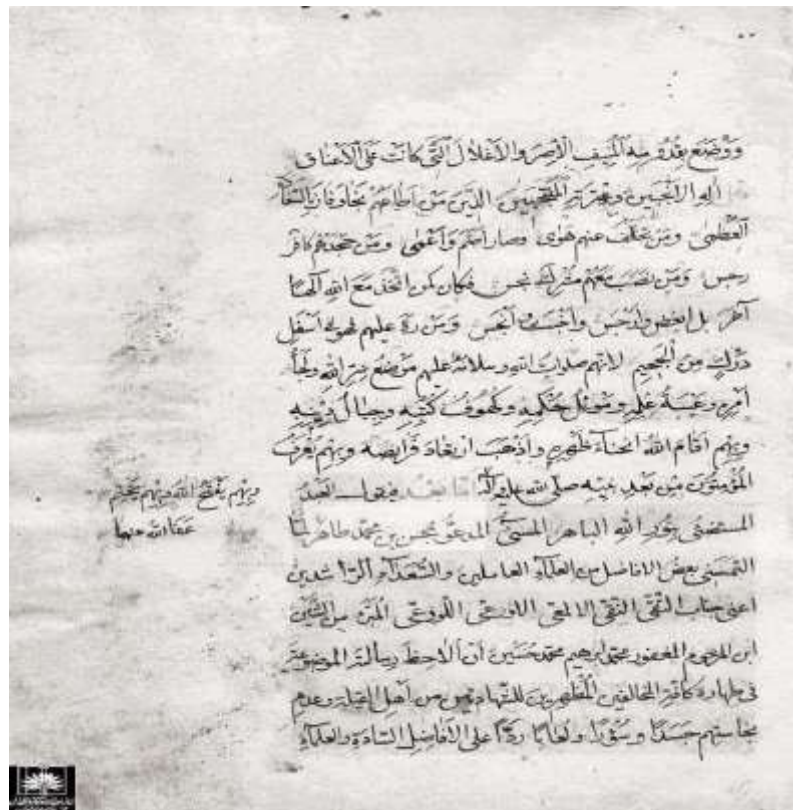 ووضع بقدومه المنيف الإصر والأغلال التي كانت على الأعناق
آله المنتجبين وعترته الذين من أطاعهم نجا وفاز بالسعادة
العظمى ومن تخلف عنهم هوى وصار أصم وأعمى ومن جحدهم كافر
رجس ومن نصب معهم مشرك نجس فكان كمن اتخذ مع الله إلها
آخر بل أبغض وأرجس وأخس وأنجس ومن رد عليهم فهو في أسفل
درك من الجحيم لأنهم صلوات الله وسلامه عليهم موضع سر الله ولجأ
أمره وعيبة علمه وموئل حكمه وكهوف كتبه وجبال دينه
وبهم أقام الله انحناء ظهره وأذهب ارتعاد فرايصه وبهم يعرف
المؤمنون من بعد نبيه صلى الله عليه وآله أما بعد فيقول العبد
المستضئ بنور الله الباهر المسمى المدعو بمحسن بن محمد طاهر لما
التمسني بعض الأفاضل من العلماء العاملين والسعداء والراشدين
أعني جناب التقي النقي الألمعي الأورعي اللوذعي المبرء من الشين
ابن المرحوم المغفور محمد ابرهيم محمد حسين أن ألاحظ رسالته الموضوعة
في طهارة كافة المخالفين المظهرين للشهادتين من أهل القبلة وعدم
نجاستهم جسدا وسؤرا ولعابا ردا على الأفاضل السادة والعلماء
وبهم يفتح الله وبهم يختم
عفا الله عنهما